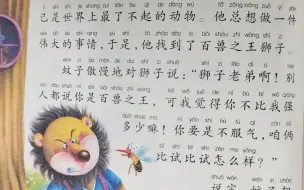 己是世界上最了不起的动物。他总想做一件
伟大的事情,于是,他找到了百兽之王狮子。
蚊子傲慢地对狮子说:“狮子老弟啊!别
人都说你是百兽之王,可我觉得你不比我强
多少嘛!你要是不服气,咱俩
比试比试怎么样?”
说完,蚊子